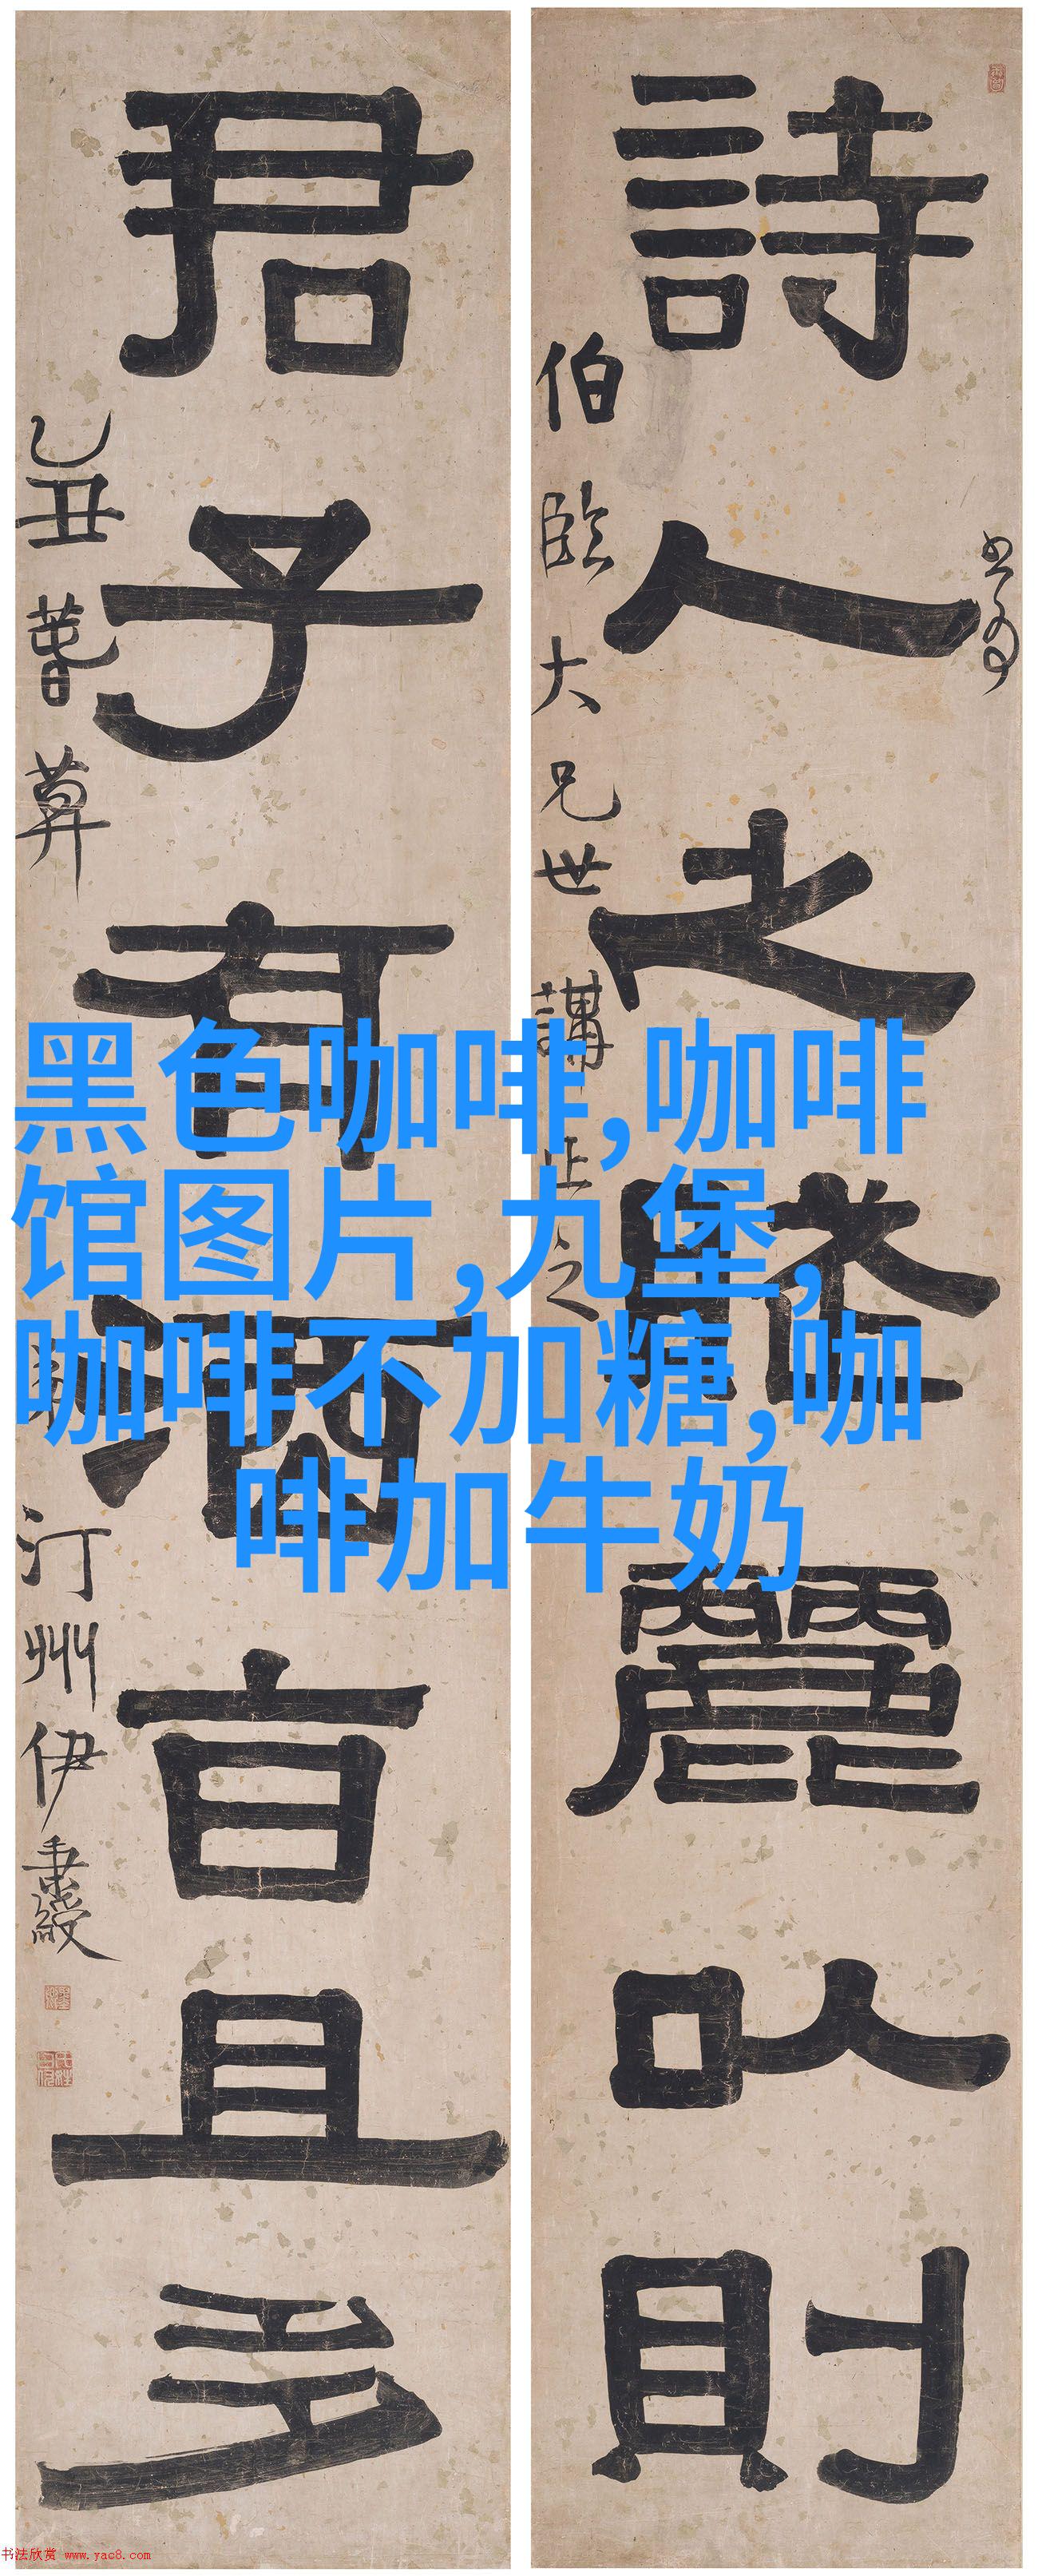 詩人之賦麗以則
書為
伯臨大兄世講正之
君子有酒旨且多
乙丑
汀州伊秉綬
黑色咖啡,咖啡
馆图片,九堡,
咖啡不加糖,咖
啡加牛奶
书法欣赏 www.yac8.com